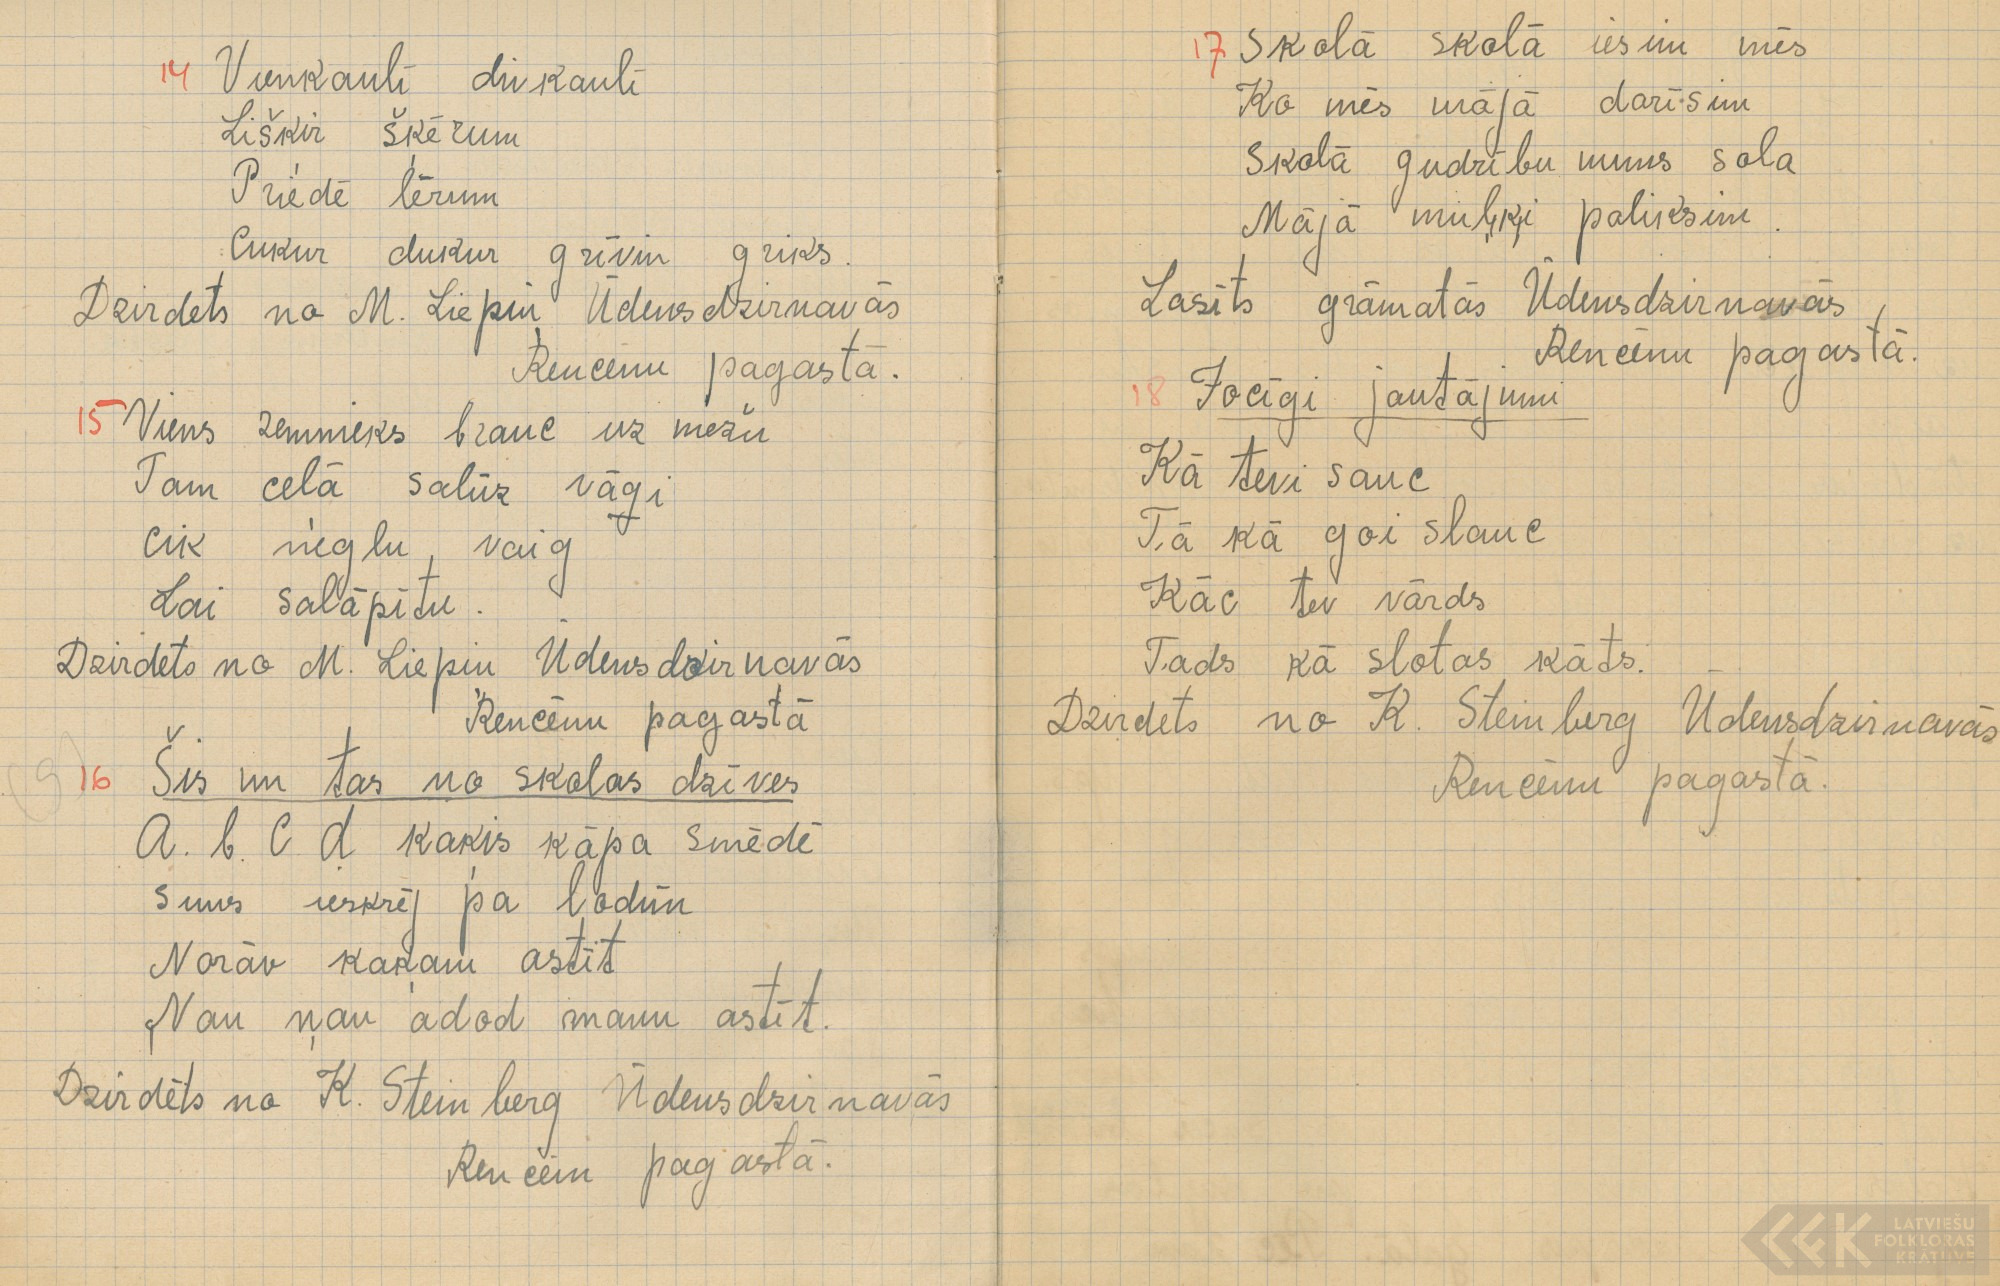 14 Vienkaulī divkaulī
Liškir šķērum
Priedē lērum
Cukur dukur grīvin griks.
Dzirdets no M. Liepiņ Ūdensdzirnavās
Rencēnu pagastā.
15 Viens zemnieks brauc uz mežu
Tam celā salūz vāģi
cik nieglu vaig
Lai salāpītu.
Dzirdets no M. Liepin Ūdensdzirnavās
Rencēnu pagastā
16 Šis un tas no skolas dzīves
A. b. C d kakis kāpa smēdē
suns ieskrēj pa lodiņ
Norāv kaķam astīt
Ņau ņau adod manu astīt.
Dzirdēts no K. Steinberg Ūdensdzirnavās
Rencēn pagastā.
17 Skolā skolā iesim mēs
Ko mēs mājā darīsim
Skolā gudrību mums sola
Mājā muļķi paliksim.
Lasīts grāmatās Ūdensdzirnavās,
Rencēnu pagastā.
18 Jocīgi jautājumi
Kā tevi sauc
Tā kā goi slauc
Kāc tev vārds
Tads kā slotas kāts.
Dzirdets no K. Steinberg Ūdensdzirnavās
Rencēnu pagastā.
LATVIEŠU
FOLKLORAS
KRĀTUVE